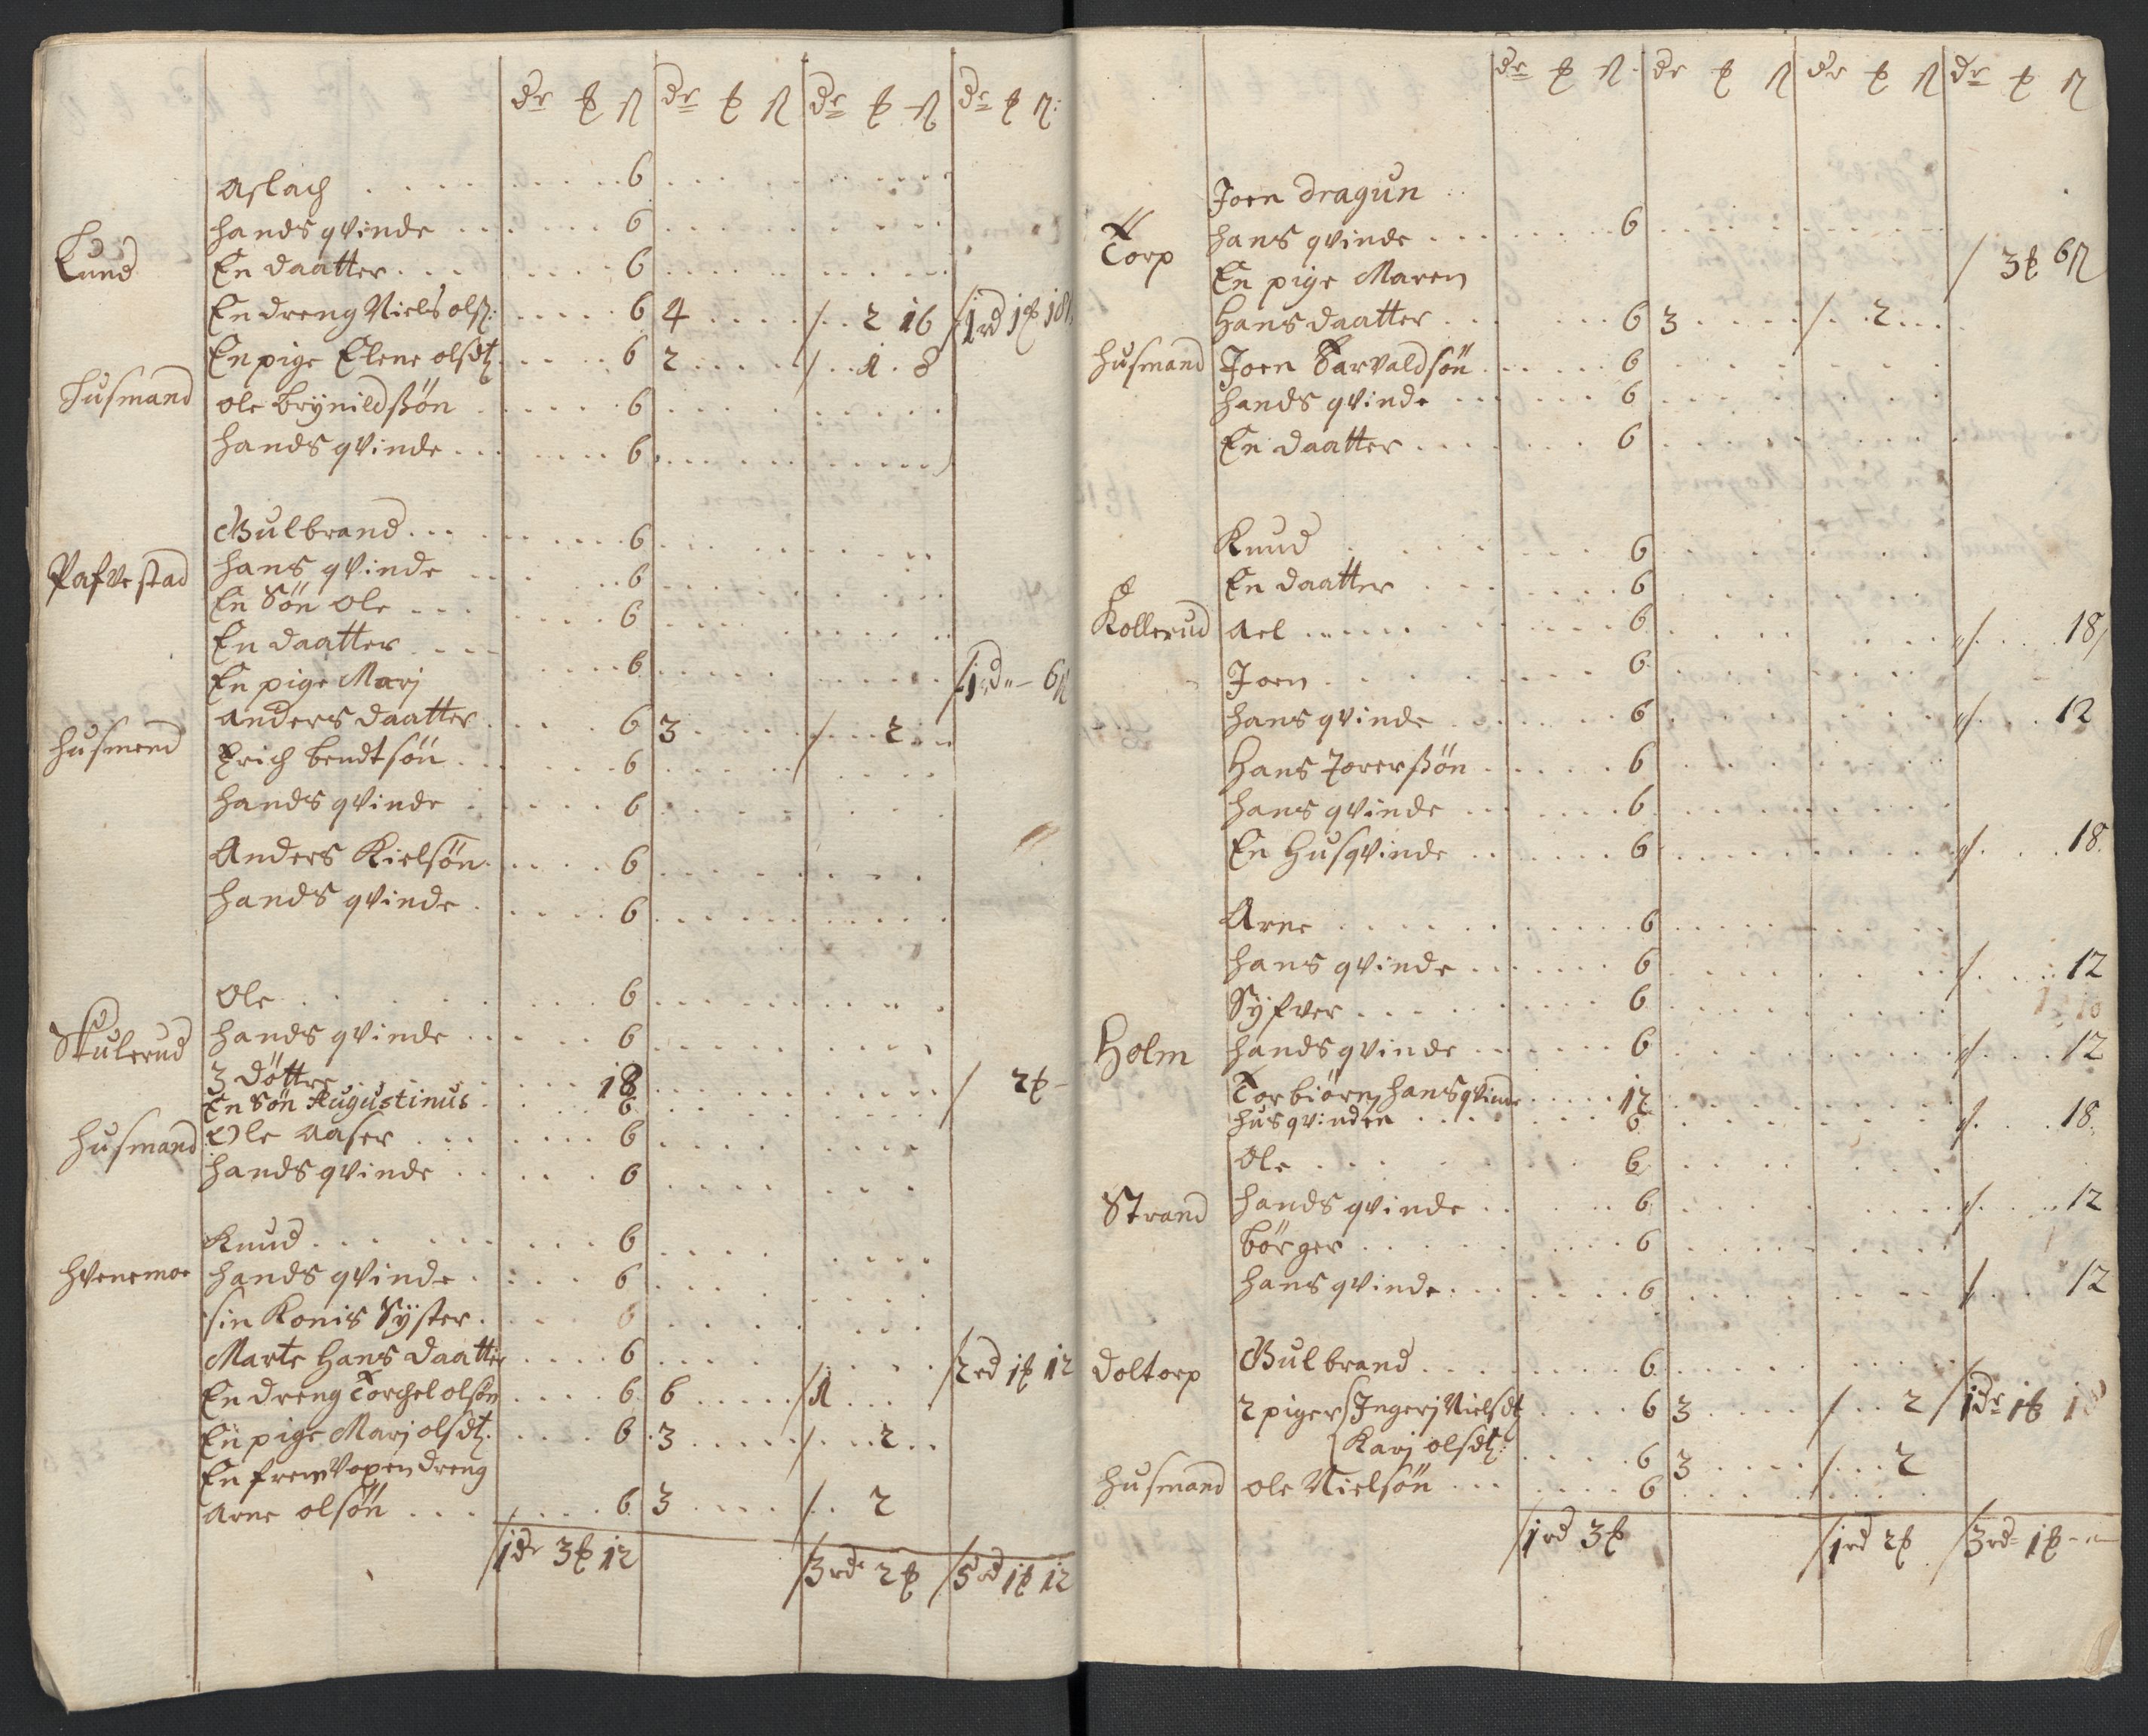 dr ꝥ ß dr ꝥ ß dr ꝥ ß dr ꝥ ß
Aslach . . . . 6
hands qvinde . . . 6
Lund
En daatter . . . 6
En dreng Niels olß: 6 4 / 2 16 /1rd 1ꝥ 18
En pige Elene olsdt 6 2 / 1 8
Husmand ole brynildßön 6
hands qvinde . . . 6
Gulbrand . . . 6
Pafvestad hans qvinde 6
En Sön Ole . . . 6
En daatter . . . 6
En pige Marj /1rd " 6ß
Anders daatter 6 3 / 2
husmend Erich bendtsön 6
hands qvinde 6
Anders Kielsön 6
hands qvinde 6
Ole 6
Skulerud hands qvinde 6
3 döttre 18 / 2ꝥ
En Sön Augustinus 6
Husmand Ole Aaser 6
hands qvinde 6
Knud 6
Hvenemoe hands qvinde 6
sin Konis Syster 6
Marte Hans daatter 6 /2rd 1ꝥ 12
En dreng Torchel olsön 6 6 /1
En pige Marj olsdt. 6 3 / 2
En frem Vopen dreng
Arne olsön 6 3 / 2
/1dr 3ꝥ 12 /3rdr 2ꝥ /5rd 1ꝥ 12
dr ꝥ ß dr ꝥ ß dr ꝥ ß dr ꝥ ß
Joen dragun
Torp hans qvinde 6
En pige Maren / 3ꝥ 6ß
Hans daatter 6 3 / 2
husmand Joen Tarvaldsön 6
hands qvinde 6
En daatter 6
Knud 6
En daatter 6
Kollerud Ael 6 / 18
Joen 6
hans qvinde 6 / 12
Hans Joverßön 6
hans qvinde 6
En Husqvinde 6 / 18
Arne 6
hans qvinde 6 / 12
Syfver 6
Holm hands qvinde 6 / 12
Torbiørn, hans qvinde 12
husqvinden 6 / 18
Ole 6
Strand hands qvinde 6 / 12
börger 6
hans qvinde 6 / 12
doltorp Gulbrand 6
2 piger Ingerj Nielsdt 6 3 / 2 /1dr 1ꝥ
Karj olsdt: 6 3 / 2
husmand ole Nielsön 6
/1rd 3ꝥ /1rd 2ꝥ /3rd 1ꝥ